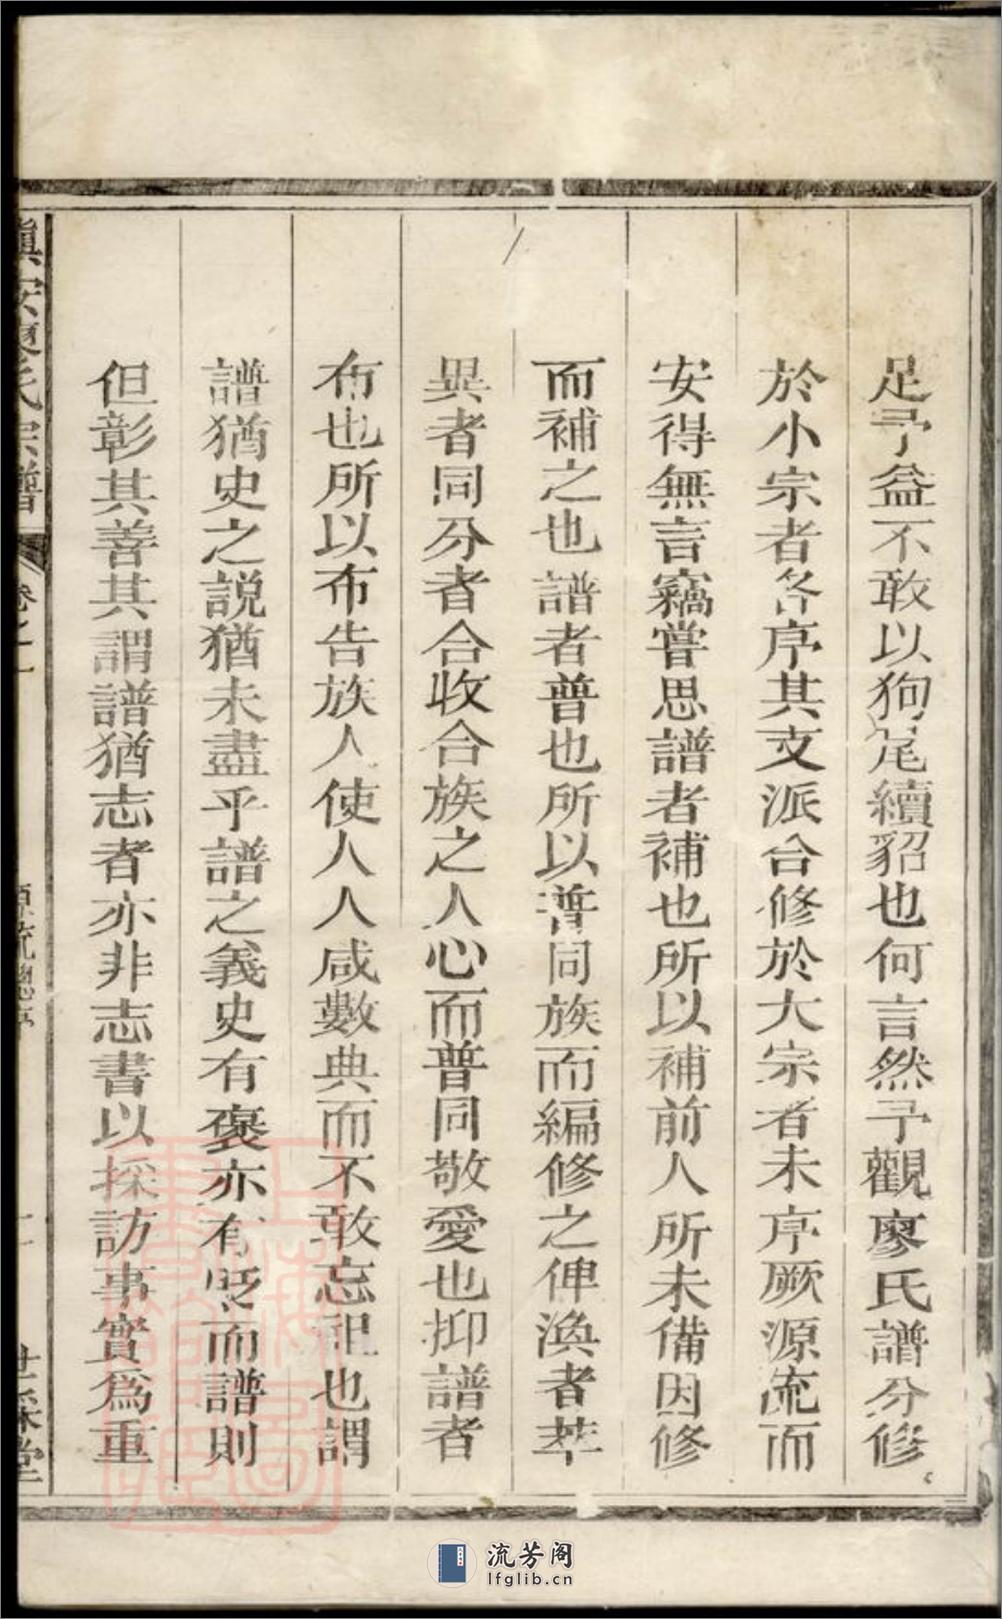 足予益不敢以狗尾續貂也何言然予觀廖氏譜分修
於小宗者各序其支派合修於大宗者未序厥源流而
安得無言竊嘗思譜者補也所以補前人所未備因修
而補之也譜者普也所以普同族而編修之俾渙者萃
異者同分者合收合族之人心而普同敬愛也抑譜者
布也所以布告族人使人人咸數典而不敢忘祀也謂
譜猶史之説猶未盡乎譜之義史有褒亦有貶而譜則
但彰其善其謂譜猶志者亦非志書以採訪事實爲重
鎮安廖氏宗譜
源流總序
世綵堂
流芳阁
lfglib.cn